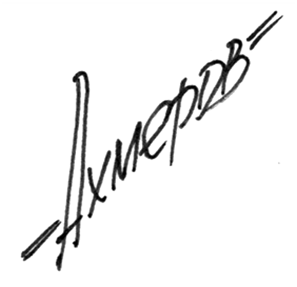 Ахмеров